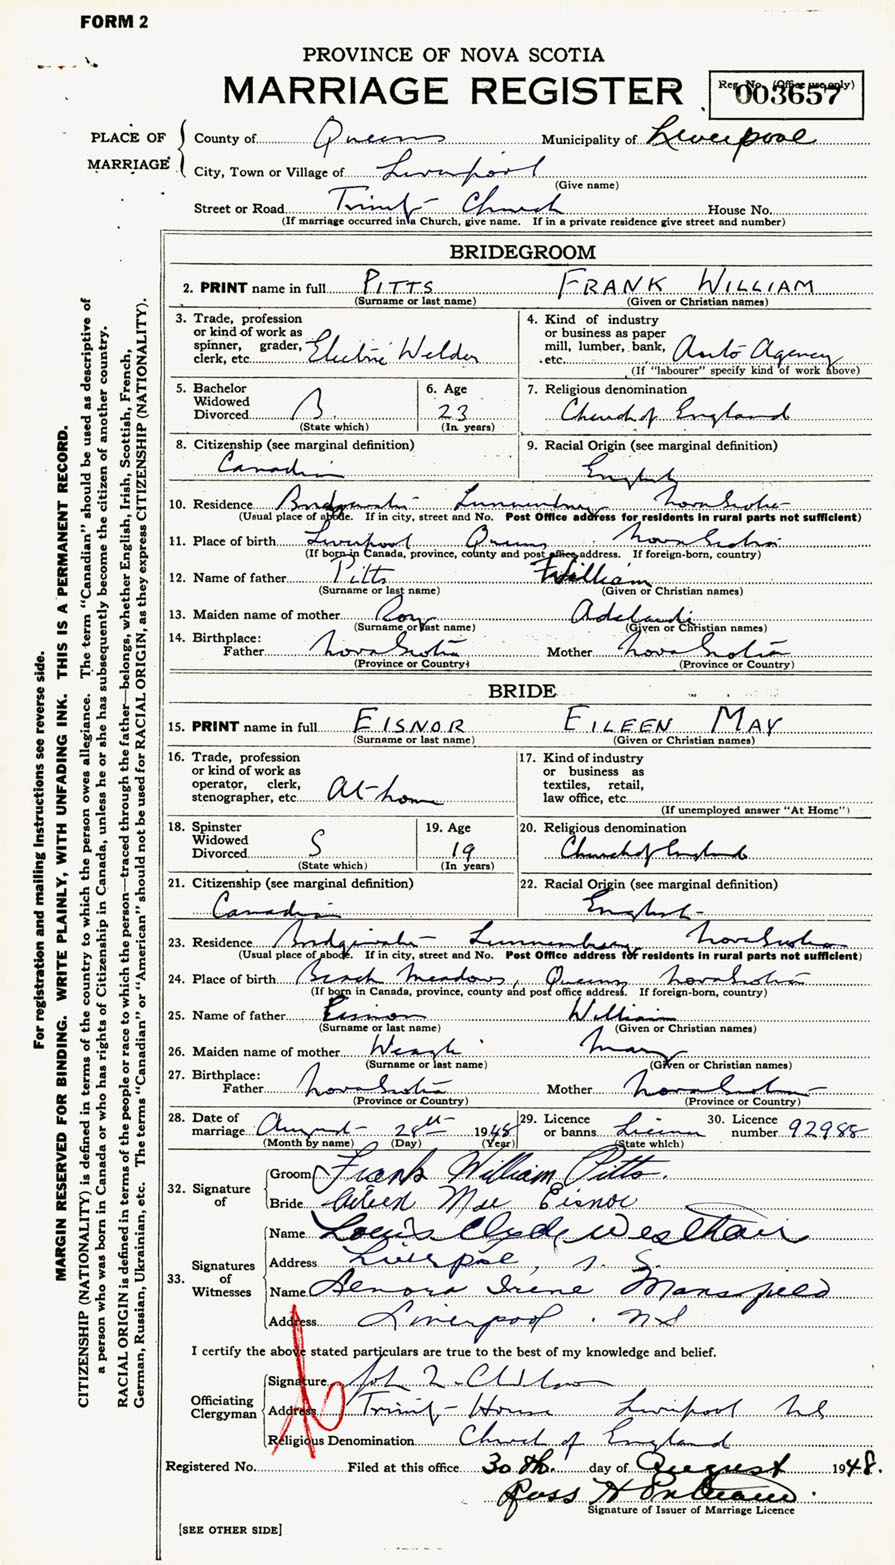 FORM 2
PROVINCE OF NOVA SCOTIA
MARRIAGE REGISTER
Reg. No. (Office use only)
003657
PLACE OF MARRIAGE
County of Queens Municipality of Liverpool
City, Town or Village of Liverpool
(Give name)
Street or Road Trinity Church House No.
(If marriage occurred in a Church, give name. If in a private residence give street and number)
BRIDEGROOM
2. PRINT name in full PITTS FRANK WILLIAM
(Surname or last name) (Given or Christian names)
3. Trade, profession 4. Kind of industry
or kind of work as or business as paper
spinner, grader, mill, lumber, bank,
clerk, etc. Electric Welder etc. Auto Agency
(If "labourer" specify kind of work above)
5. Bachelor 6. Age 7. Religious denomination
Widowed
Divorced B 23 Church of England
(State which) (In years)
8. Citizenship (see marginal definition) 9. Racial Origin (see marginal definition)
Canadian English
10. Residence Bridgewater Lunenburg Nova Scotia
(Usual place of abode. If in city, street and No. Post Office address for residents in rural parts not sufficient)
11. Place of birth Liverpool Queens Nova Scotia
(If born in Canada, province, county and post office address. If foreign-born, country)
12. Name of father Pitts William
(Surname or last name) (Given or Christian names)
13. Maiden name of mother Roy
(Surname or last name) (Given or Christian names)
14. Birthplace:
Father Nova Scotia Mother Nova Scotia
(Province or Country) (Province or Country)
BRIDE
15. PRINT name in full EISNOR EILEEN MAY
(Surname or last name) (Given or Christian names)
16. Trade, profession 17. Kind of industry
or kind of work as or business as
operator, clerk, textiles, retail,
stenographer, etc. At home law office, etc.
(If unemployed answer "At Home")
18. Spinster 19. Age 20. Religious denomination
Widowed
Divorced S 19 Church of England
(State which) (In years)
21. Citizenship (see marginal definition) 22. Racial Origin (see marginal definition)
Canadian English
23. Residence Bridgewater Lunenburg, Nova Scotia
(Usual place of abode. If in city, street and No. Post Office address for residents in rural parts not sufficient)
24. Place of birth Beach Meadows, Queens Nova Scotia
(If born in Canada, province, county and post office address. If foreign-born, country)
25. Name of father Eisnor William
(Surname or last name) (Given or Christian names)
26. Maiden name of mother Mary
(Surname or last name) (Given or Christian names)
27. Birthplace:
Father Nova Scotia Mother Nova Scotia
(Province or Country) (Province or Country)
28. Date of marriage August 28th 1948 29. Licence or banns License 30. Licence number 92988
(Month by name) (Day) (Year) (State which)
32. Signature of
Groom Frank William Pitts.
Bride Eileen Mae Eisnor
33. Signatures of Witnesses
Name Louis Clyde Westhaver
Address Liverpool, N.S.
Name Lenora Irene Mansfield
Address Liverpool. NS
I certify the above stated particulars are true to the best of my knowledge and belief.
Officiating Clergyman
Signature
Address Trinity House Liverpool NS
Religious Denomination Church of England
Registered No. Filed at this office 30th. day of August 1948.
Ross H
Signature of Issuer of Marriage Licence
[SEE OTHER SIDE]
For registration and mailing instructions see reverse side.
MARGIN RESERVED FOR BINDING. WRITE PLAINLY, WITH UNFADING INK. THIS IS A PERMANENT RECORD.
CITIZENSHIP (NATIONALITY) is defined in terms of the country to which the person owes allegiance. The term "Canadian" should be used as descriptive of
a person who was born in Canada or who has rights of Citizenship in Canada, unless he or she has subsequently become the citizen of another country.
RACIAL ORIGIN is defined in terms of the people or race to which the person—traced through the father—belongs, whether English, Irish, Scottish, French,
German, Russian, Ukrainian, etc. The terms "Canadian" or "American" should not be used for RACIAL ORIGIN, as they express CITIZENSHIP (NATIONALITY).